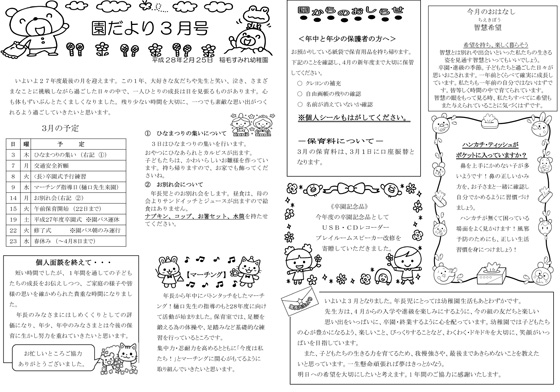 園だより３月号
平成２８年２月２５日　稲毛すみれ幼稚園
いよいよ２７年度最後の月を迎えます。この１年、大好きな友だちや先生と笑い、泣き、さまざ
まなことに挑戦しながら過ごした日々の中で、一人ひとりの成長は目を見張るものがあります。心
も体もずいぶんとたくましくなりました。残り少ない時間を大切に、一つでも素敵な思い出がつく
れるよう過ごしていきたいと思います。
３月の予定
日 曜 予　定
3 木 ひなまつりの集い（右記 ①）
7 月 交通安全祈願
8 火 （長）卒園式予行練習
9 水 マーチング指導日（樋口先生来園）
14 月 お別れ会（右記 ②）
15 火 午前保育開始（22日まで）
19 土 平成27年度卒園式　卒園バス運休
22 火 修了式　卒園バス朝のみ運行
23 水 春休み（～4月8日まで）
① ひなまつりの集いについて
３日はひなまつりの集いを行います。
おやつにひなあられとカルピスが出ます。
子どもたちは、かわいらしいお雛様を作ってい
ます。持ち帰りますので、お家でも飾ってくだ
さいね。
② お別れ会について
年長児とのお別れ会をします。昼食は、母の
会よりサンドイッチとジュースが出ますので給
食はありません。
ナプキン、コップ、お箸セット、水筒を持たせて
ください。
個人面談を終えて・・・
短い時間でしたが、１年間を通しての子ども
たちの成長をお伝えしつつ、ご家庭の様子や皆
様の思いを確かめられた貴重な時間になりまし
た。
年長のみなさまにはしめくくりとしての評
価になり、年少、年中のみなさまとは今後の保
育に生かし努力を重ねていきたいと思います。
お忙しいところご協力
ありがとうございました。
【マーチング】
年長から年中にバトンタッチをしたマーチ
ング！樋口先生の指導のもと28年度に向け
て活動が始まりました。保育室では、足腰を
鍛える為の体操や、足踏みなど基礎的な練
習を行っているところです。
集中力・忍耐力を高めるとともに「今度は私
たち！」とマーチングに関心がもてるように
取り組んでいきたいと思います。
園からのおしらせ
＜年中と年少の保護者の方へ＞
お預かりしている紙袋で保育用品を持ち帰ります。
下記のことを確認し、４月の新年度まで大切に保管
してください。
○ クレヨンの補充
○ 自由画帳の残りの確認
○ 名前が消えていないか確認
※個人シールもはがしてください。
―保育料について―
３月の保育料は、３月１日に口座振替と
なります。
《卒園記念品》
今年度の卒園記念品として
ＵＳＢ・ＣＤレコーダー
プレイルームスピーカー改修を
寄贈していただきました。
今月のおはなし
ちえきぼう
智慧希望
希望を持ち、楽しく暮らそう
ハンカチ・ティッシュが
ポケットに入っていますか？
鼻を上手にかめない子が多い
ようです！鼻の正しいかみ
方を、お子さまと一緒に確認し
自分でかめるように習慣づけ
ましょう。
ハンカチが無くて困っている
場面をよく見かけます！風邪
予防のためにも、正しい生活
習慣を身につけましょう！
いよいよ３月となりました。年長児にとっては幼稚園生活もあとわずかです。
先生方は、４月からの入学や進級を楽しみにするように、今の組の友だちと楽しい
思い出をいっぱいに、卒園・終業する心に心を配っています。幼稚園では子どもたち
の心が豊かになるよう、楽しいこと、びっくりすることなど、わくわく・ドキドキを大切に、笑顔がいっ
ぱいを目指しています。
また、子どもたちの生きる力を育てるため、我慢強さや、最後まであきらめないことを教えた
いと思っています。一生懸命頑張れば夢はきっとかなう。
明日への希望を大切にしたいと考えます。１年間のご協力に感謝いたします。